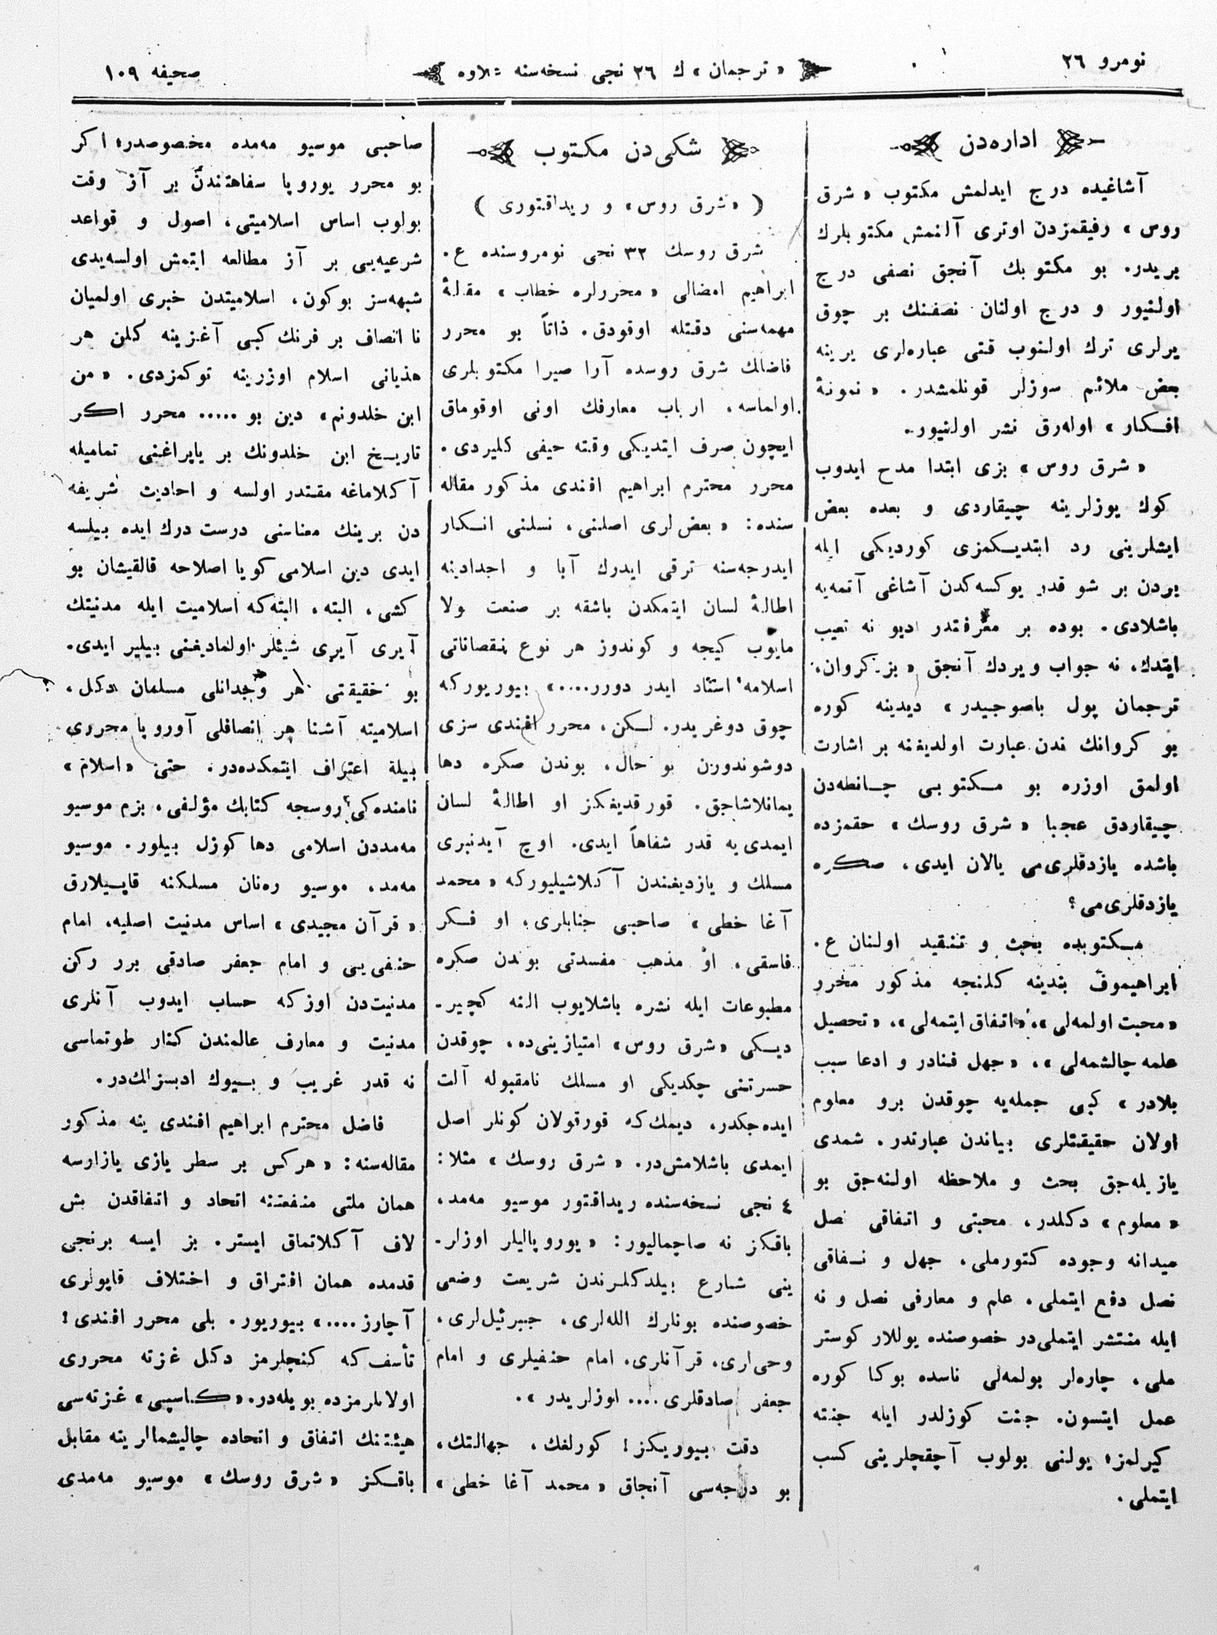 نومرو ٢٦
« ترجمان » ك ٢٦ نجی نسخه‌سنه علاوه
صحیفه ١٠٩
اداره‌دن
آشاغیده درج ایدلمش مکتوب « شرق
روس » رفیقمزدن اوتری آلنمش مکتوبلرك
بریدر. بو مکتوبك آنجق نصفی درج
اولنیور و درج اولنان نصفنك بر چوق
یرلری ترك اولنوب قتی عباره‌لری یرینه
بعض ملائم سوزلر قونلمشدر. « نمونهٔ
افکار » اوله‌رق نشر اولنیور.
« شرق روس » بزی ابتدا مدح ایدوب
كوك یوزلرینه چیقاردی و بعده بعض
ایشلرینی رد ایتدیکمزی کوردیکی ایله
بردن بر شو قدر یوکسه‌کدن آشاغی آتمه‌یه
باشلادی. بوده بر معرفتدر ادیو نه تعیب
ایتدك، نه جواب ویردك آنجق « بز کروان،
ترجمان پول باصوجیدر » دیدینه کوره
بو کروانك ندن عبارت اولدیغنه بر اشارت
اولمق اوزره بو مکتوبی چانطه‌دن
چیقاردق عجبا « شرق روسك » حقمزده
باشده یازدقلری‌می یالان ایدی، صکره
یازدقلری‌می؟
مکتوبده بحث و تنقید اولنان ع.
ابراهیموف بندینه کلنجه مذکور محرر
« محبت اولمه‌لی »، « اتفاق ایتمه‌لی »، « تحصیل
علمه چالشمه‌لی »، « جهل فنادر و ادعا سبب
بلادر » کبی جمله‌یه چوقدن برو معلوم
اولان حقیقتلری بیاندن عبارتدر. شمدی
یازیله‌جق بحث و ملاحظه اولنه‌جق بو
« معلوم » دکلدر، محبتی و اتفاقی نصل
میدانه وجوده کتورملی، جهل و نفاقی
نصل دفع ایتملی، علم و معارفی نصل و نه
ایله منتشر ایتملی‌در خصوصنده یوللار کوستر
ملی، چاره‌لر بولمه‌لی ناسده بوکا کوره
عمل ایتسون. جنت کوزلدر ایله جنته
کیرلمز؛ یولنی بولوب آچقچلرینی کسب
ایتملی.
شکی‌دن مکتوب
( « شرق روس » و ریداقتوری )
شرق روسك ٣٢ نجی نومروسنده ع.
ابراهیم امضالی « محررلره خطاب » مقالهٔ
مهمه‌سنی دقتله اوقودق. ذاتاً بو محرر
فاضلك شرق روسده آرا صیرا مکتوبلری
اولماسه، ارباب معارفك اونی اوقوماق
ایچون صرف ایتدیکی وقته حیفی کلیردی.
محرر محترم ابراهیم افندی مذکور مقاله
سنده: « بعض‌لری اصلنی، نسلنی انکار
ایدرجه‌سنه ترقی ایدرك آبا و اجدادینه
اطالهٔ لسان ایتمکدن باشقه بر صنعت ولا
مایوب کیجه و کوندوز هر نوع نقصاناتی
اسلامه استناد ایدر دورر.... » بیوریورکه
چوق دوغریدر. لکن، محرر افندی سزی
دوشوندورن بو حال، بوندن صکره دها
یمانلاشاجق. قورقدیغکز او اطالهٔ لسان
ایمدی‌یه قدر شفاهاً ایدی. اوچ آیدنبری
مسلك و یازدیغندن آکلاشیلیورکه « محمد
آغا خطی » صاحبی جنابلری، او فکر
فاسقی، او مذهب مفسدتی بوندن صکره
مطبوعات ایله نشره باشلایوب النه کچیر-
دیکی « شرق روس » امتیازینی‌ده، چوقدن
حسرتنی چکدیکی او مسلك نامقبوله آلت
ایده‌جکدر، دیمك‌که قورقولان کونلر اصل
ایمدی باشلامش‌در. « شرق روسك » مثلا:
٤ نجی نسخه‌سنده ریداقتور موسیو مه‌مد،
باقکز نه صاچمالیور: « یوروپالیلر اوزلر-
ینی شارع بیلدکلرندن شریعت وضعی
خصوصنده بونلرك الله‌لری، جبرئیل‌لری،
وحی‌لری، قرآنلری، امام حنفیلری و امام
جعفر صادقلری.... اوزلریدر ».
دقت بیوریکز! کورلفك، جهالتك،
بو درجه‌سی آنجاق « محمد آغا خطی »
صاحبی موسیو مه‌مده مخصوصدر؛ اکر
بو محرر یوروپا سفاهتندن بر آز وقت
بولوب اساس اسلامیتی، اصول و قواعد
شرعیه‌یی بر آز مطالعه ایتمش اولسه‌یدی
شبهه‌سز بوکون، اسلامیتدن خبری اولمیان
نا انصاف بر فرنك کبی آغزینه کلن هر
هذیانی اسلام اوزرینه توکمزدی. « من
ابن خلدونم » دین بو ..... محرر اکر
تاریخ ابن خلدونك بر یاپراغنی تمامیله
آکلاماغه مقتدر اولسه و احادیث شریفه
دن برینك معناسنی درست درك ایده بیلسه
ایدی دین اسلامی کویا اصلاحه قالقیشان بو
کشی، البته، البته‌که اسلامیت ایله مدنیتك
آیری آیری شیئلر اولمادیغنی بیلیر ایدی.
بو حقیقتی هر وجدانلی مسلمان دکل،
اسلامیته آشنا هر انصافلی آوروپا محرری
بیله اعتراف ایتمکده‌در. حتی « اسلام »
نامنده‌کی روسجه کتابك مؤلفی، بزم موسیو
مه‌مددن اسلامی دها کوزل بیلور. موسیو
مه‌مد، موسیو ره‌نان مسلکنه قاپیلارق
« قرآن مجیدی » اساس مدنیت اصلیه، امام
حنفی‌یی و امام جعفر صادقی برر رکن
مدنیت‌دن اوزکه حساب ایدوب آنلری
مدنیت و معارف عالمندن کنار طوتماسی
نه قدر غریب و بیوك ادبسزلك‌در.
فاضل محترم ابراهیم افندی ینه مذکور
مقاله‌سنه: « هرکس بر سطر یازی یازارسه
همان ملتی منفعتنه اتحاد و اتفاقدن بش
لاف آکلاتماق ایستر. بز ایسه برنجی
قدمده همان افتراق و اختلاف قاپولری
آچارز.... » بیوریور. بلی محرر افندی!
تأسف که کنجلرمز دکل غزته محرری
اولانلرمزده بویله‌در. « کاسپی » غزته‌سی
هیئتنك اتفاق و اتحاده چالیشمالرینه مقابل
باقکز « شرق روسك » موسیو مه‌مدی